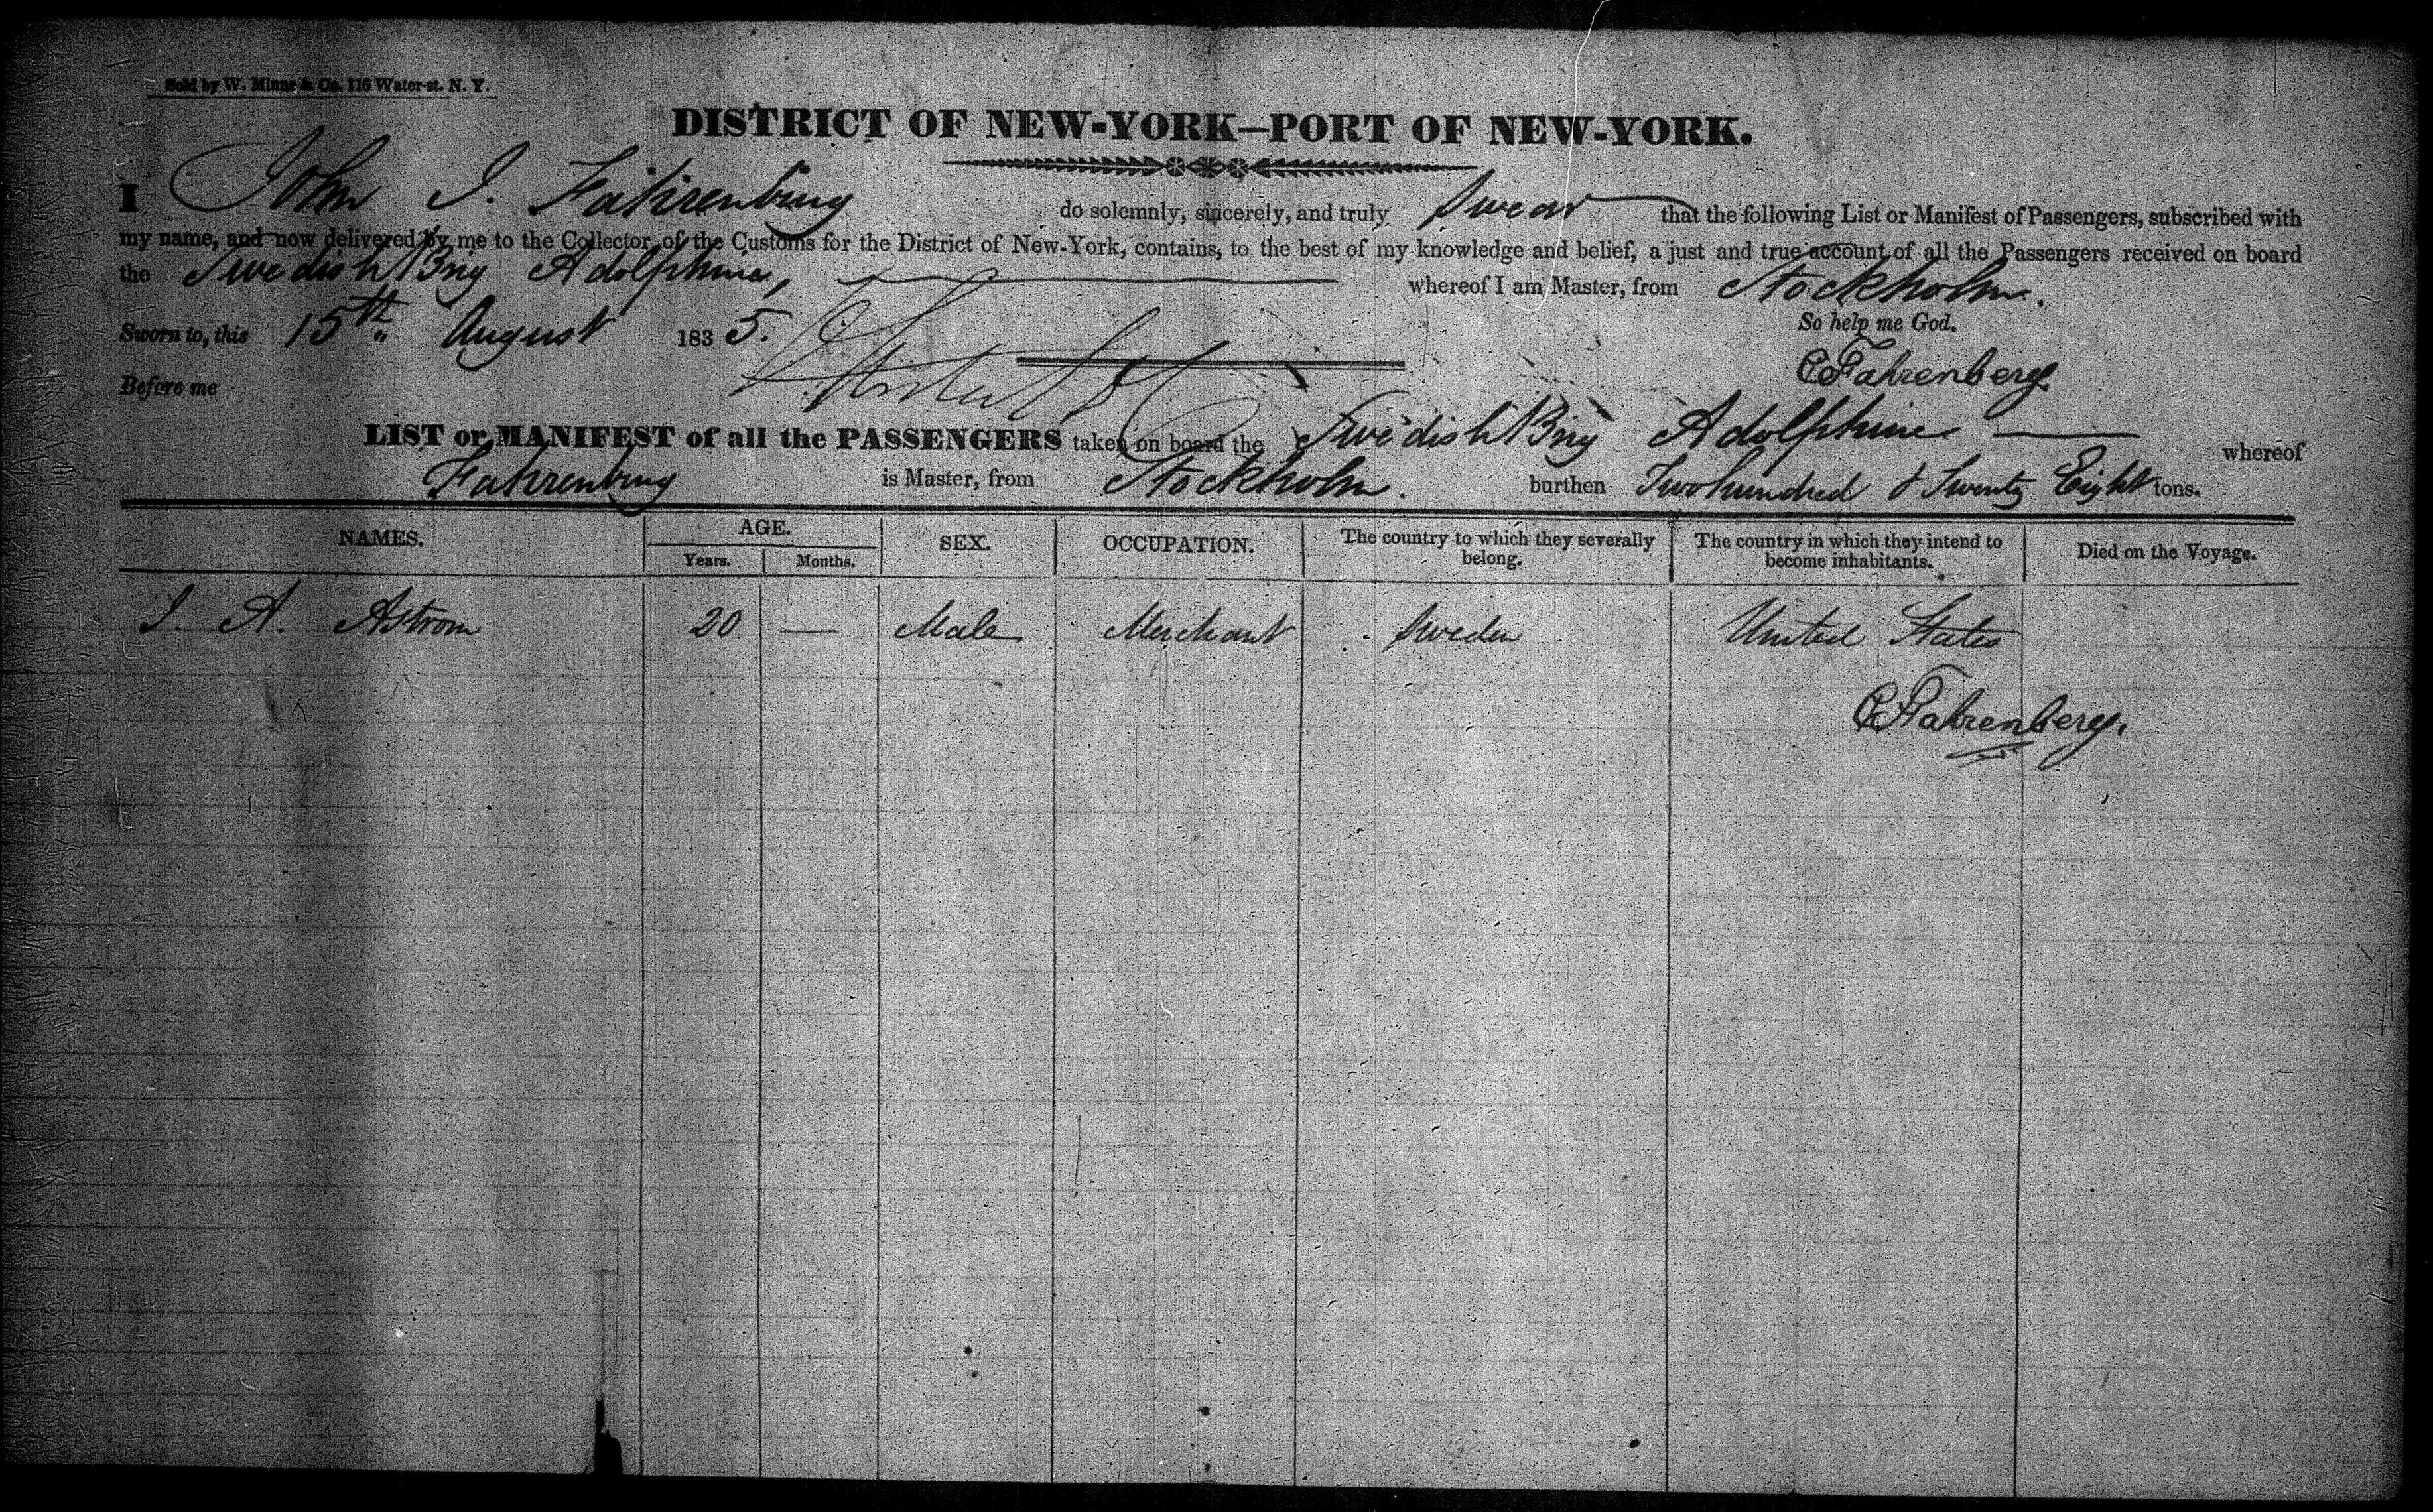 Sold by W. Minns & Co. 116 Water-st. N. Y.
DISTRICT OF NEW-YORK—PORT OF NEW-YORK.
I John I. Fahrenburg do solemnly, sincerely, and truly swear that the following List or Manifest of Passengers, subscribed with
my name, and now delivered by me to the Collector of the Customs for the District of New-York, contains, to the best of my knowledge and belief, a just and true account of all the Passengers received on board
the Swedish Brig Adolphine, whereof I am Master, from Stockholm.
Sworn to, this 15th August 1835. So help me God.
Before me CFahrenberg
LIST or MANIFEST of all the PASSENGERS taken on board the Swedish Brig Adolphine whereof
Fahrenburg is Master, from Stockholm. burthen Two hundred & Twenty Eight tons.
NAMES. AGE. SEX. OCCUPATION. The country to which they severally belong. The country in which they intend to become inhabitants. Died on the Voyage.
Years. Months.
I. A. Astrom 20 — Male Merchant Sweden United States
CFahrenberg.